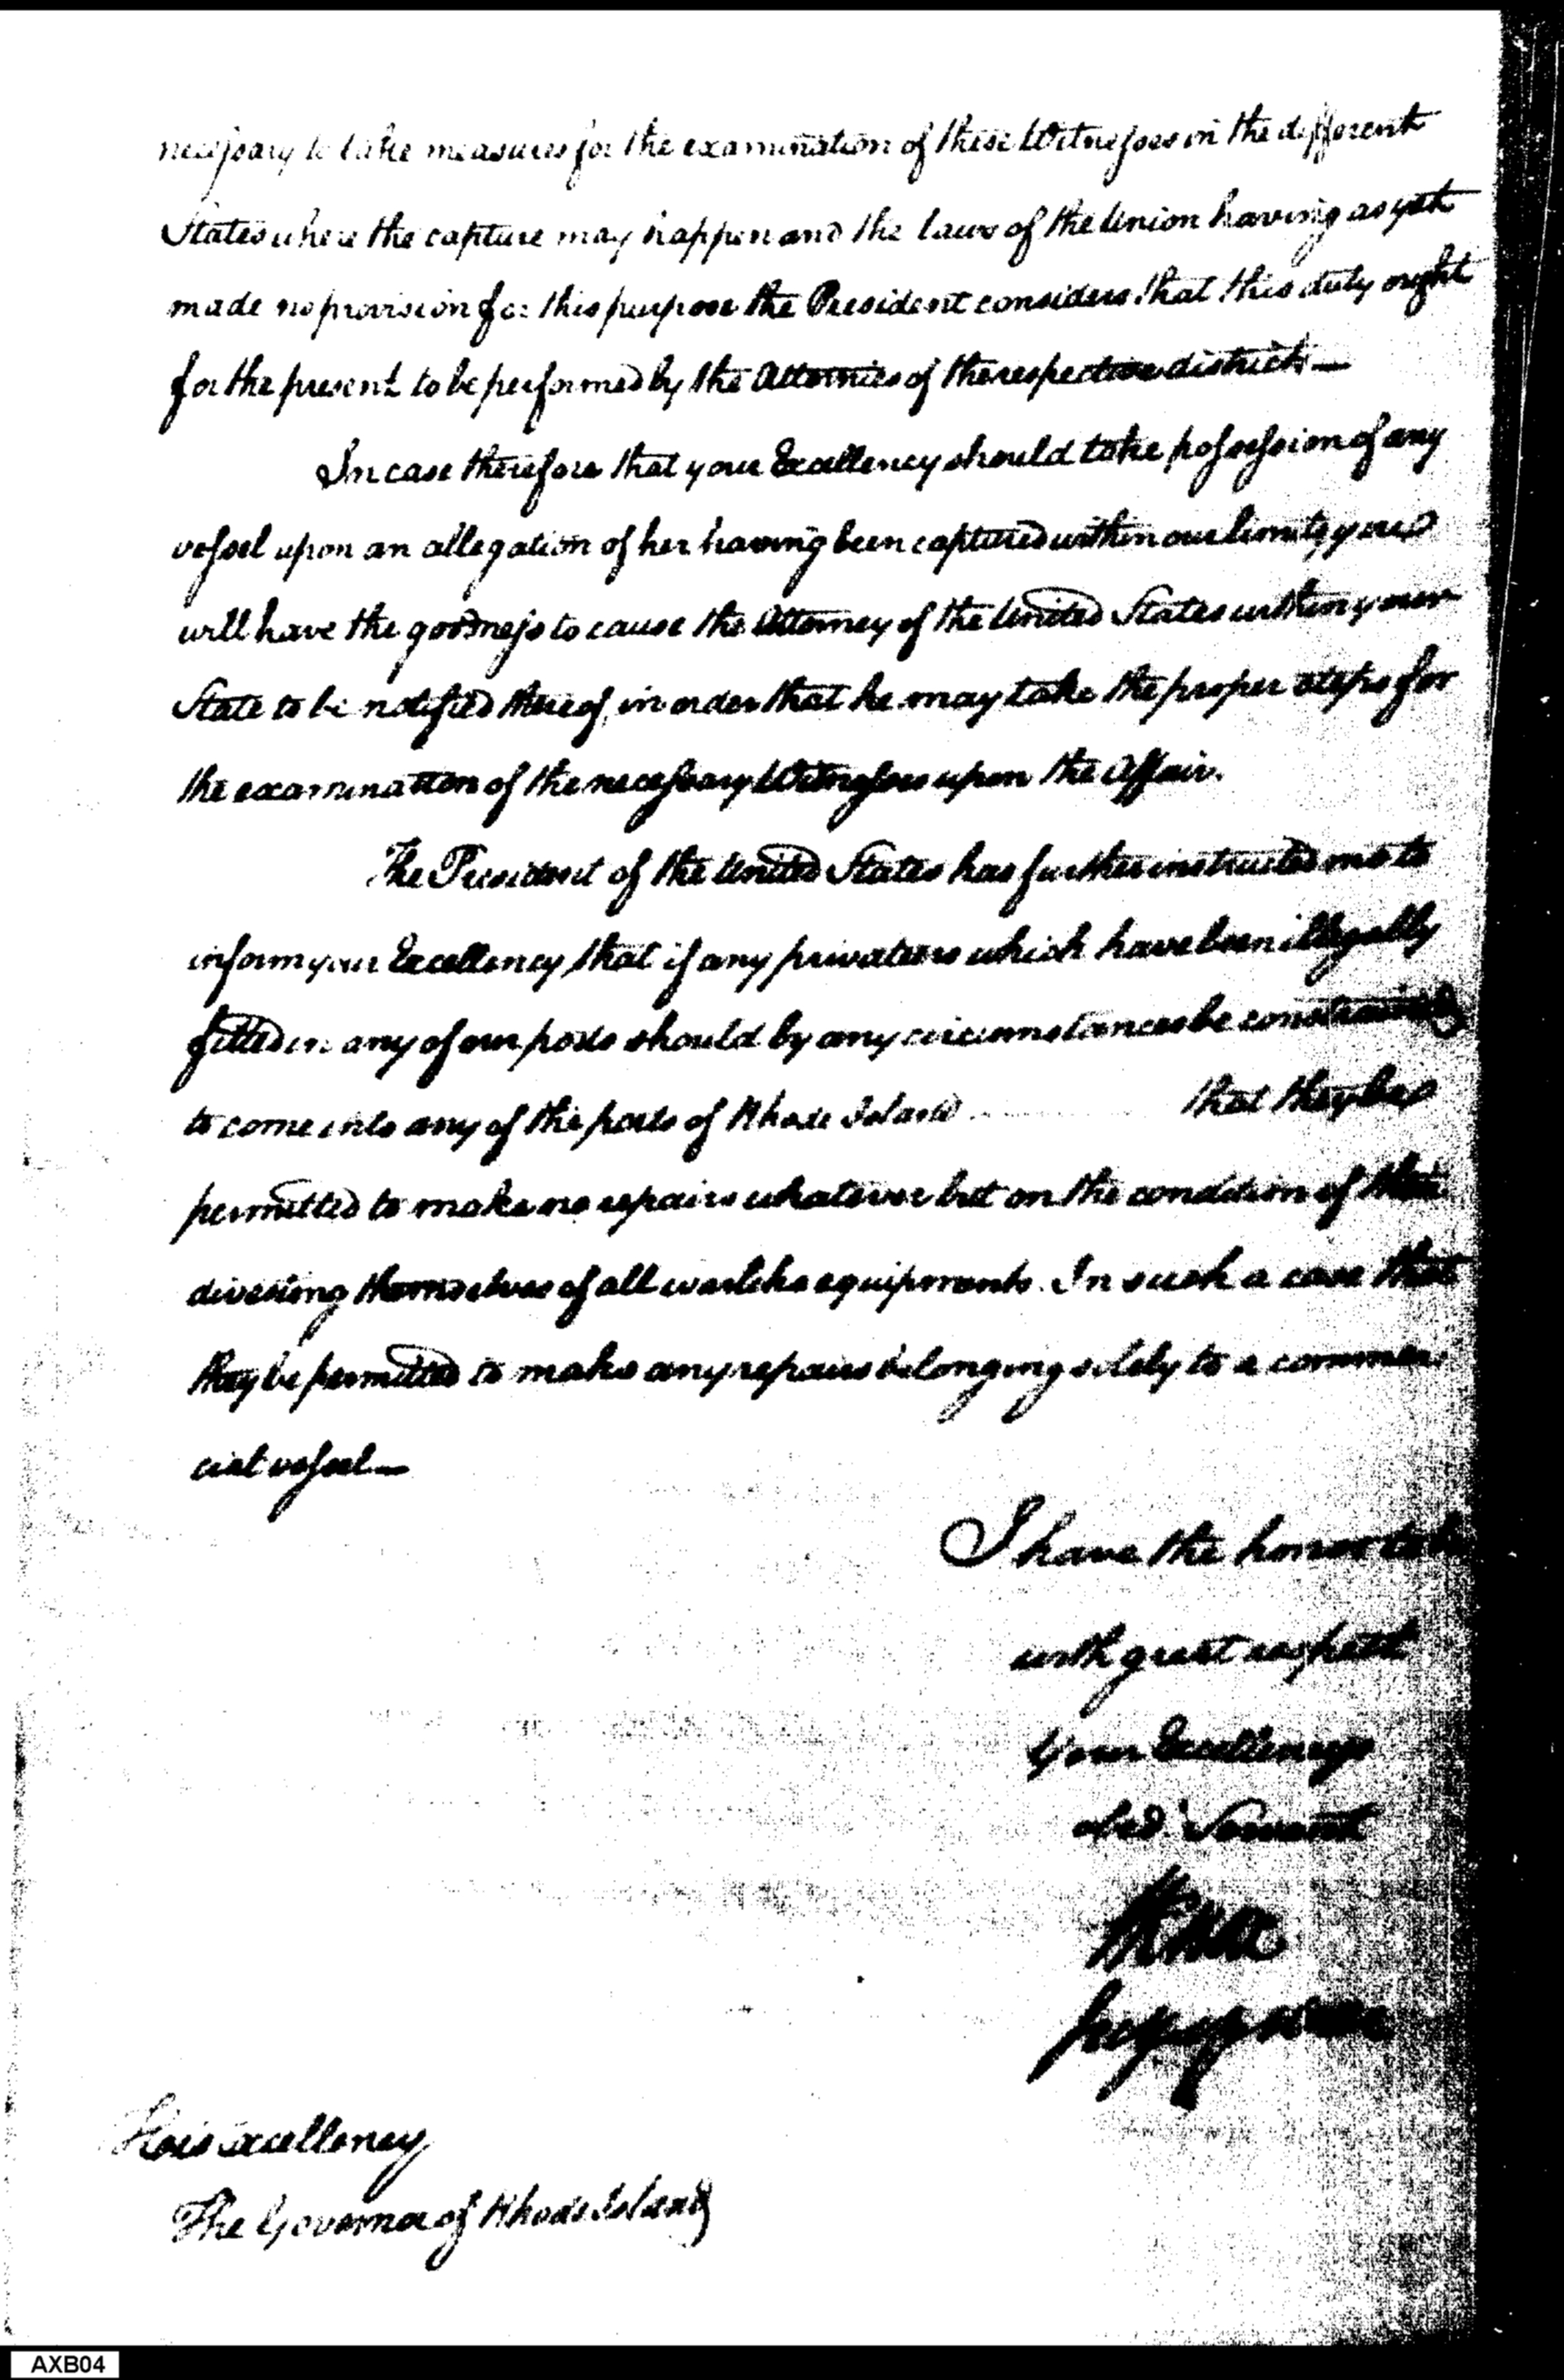 necessary to take measures for the examination of these Witnesses in the different
States where the capture may happen and the laws of the Union having as yet
made no provision for this purpose the President considers that this duty ought
for the present to be performed by the Attornies of the respective districts —
In case therefore that your Excellency should take possession of any
vessel upon an allegation of her having been captured within our limits you
will have the goodness to cause the Attorney of the United States within your
State to be notified thereof, in order that he may take the proper steps for
the examination of the necessary Witnesses upon the Affair.
The President of the United States has further instructed me to
inform your Excellency that if any privateers which have been illegally
fitted in any of our ports should by any circumstances be constrained
to come into any of the ports of Rhode Island that they be
permitted to make no repairs whatever but on the condition of their
divesting themselves of all warlike equipments. In such a case that
they be permitted to make any repairs belonging solely to a commer
cial vessel —
I have the honor to be
with great respect
Your Excellencys
obed. Servant
HKnox
Secy of War
His Excellency
The Governor of Rhode Island
AXB04